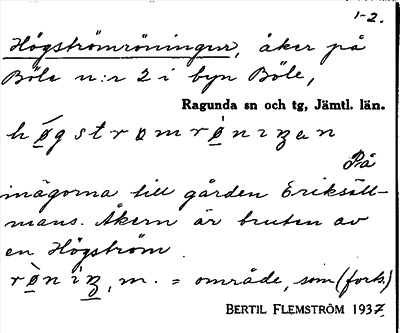 1-2.
Högströmröningen, åker på
Böle n:r 2 i byn Böle,
Ragunda sn och tg, Jämtl. län.
høgstrømrønıŋan
På
inägorna till gården Eriksäll-
mans. Åkern är bruten av
en Högström.
rø̀nıŋ, m. = område, som (forts.)
BERTIL FLEMSTRÖM 1937.